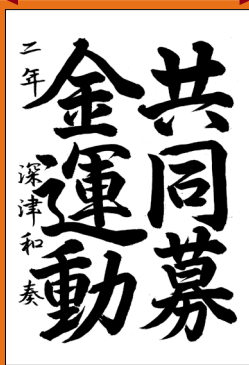 共同募
金運動
二年 深津和奏